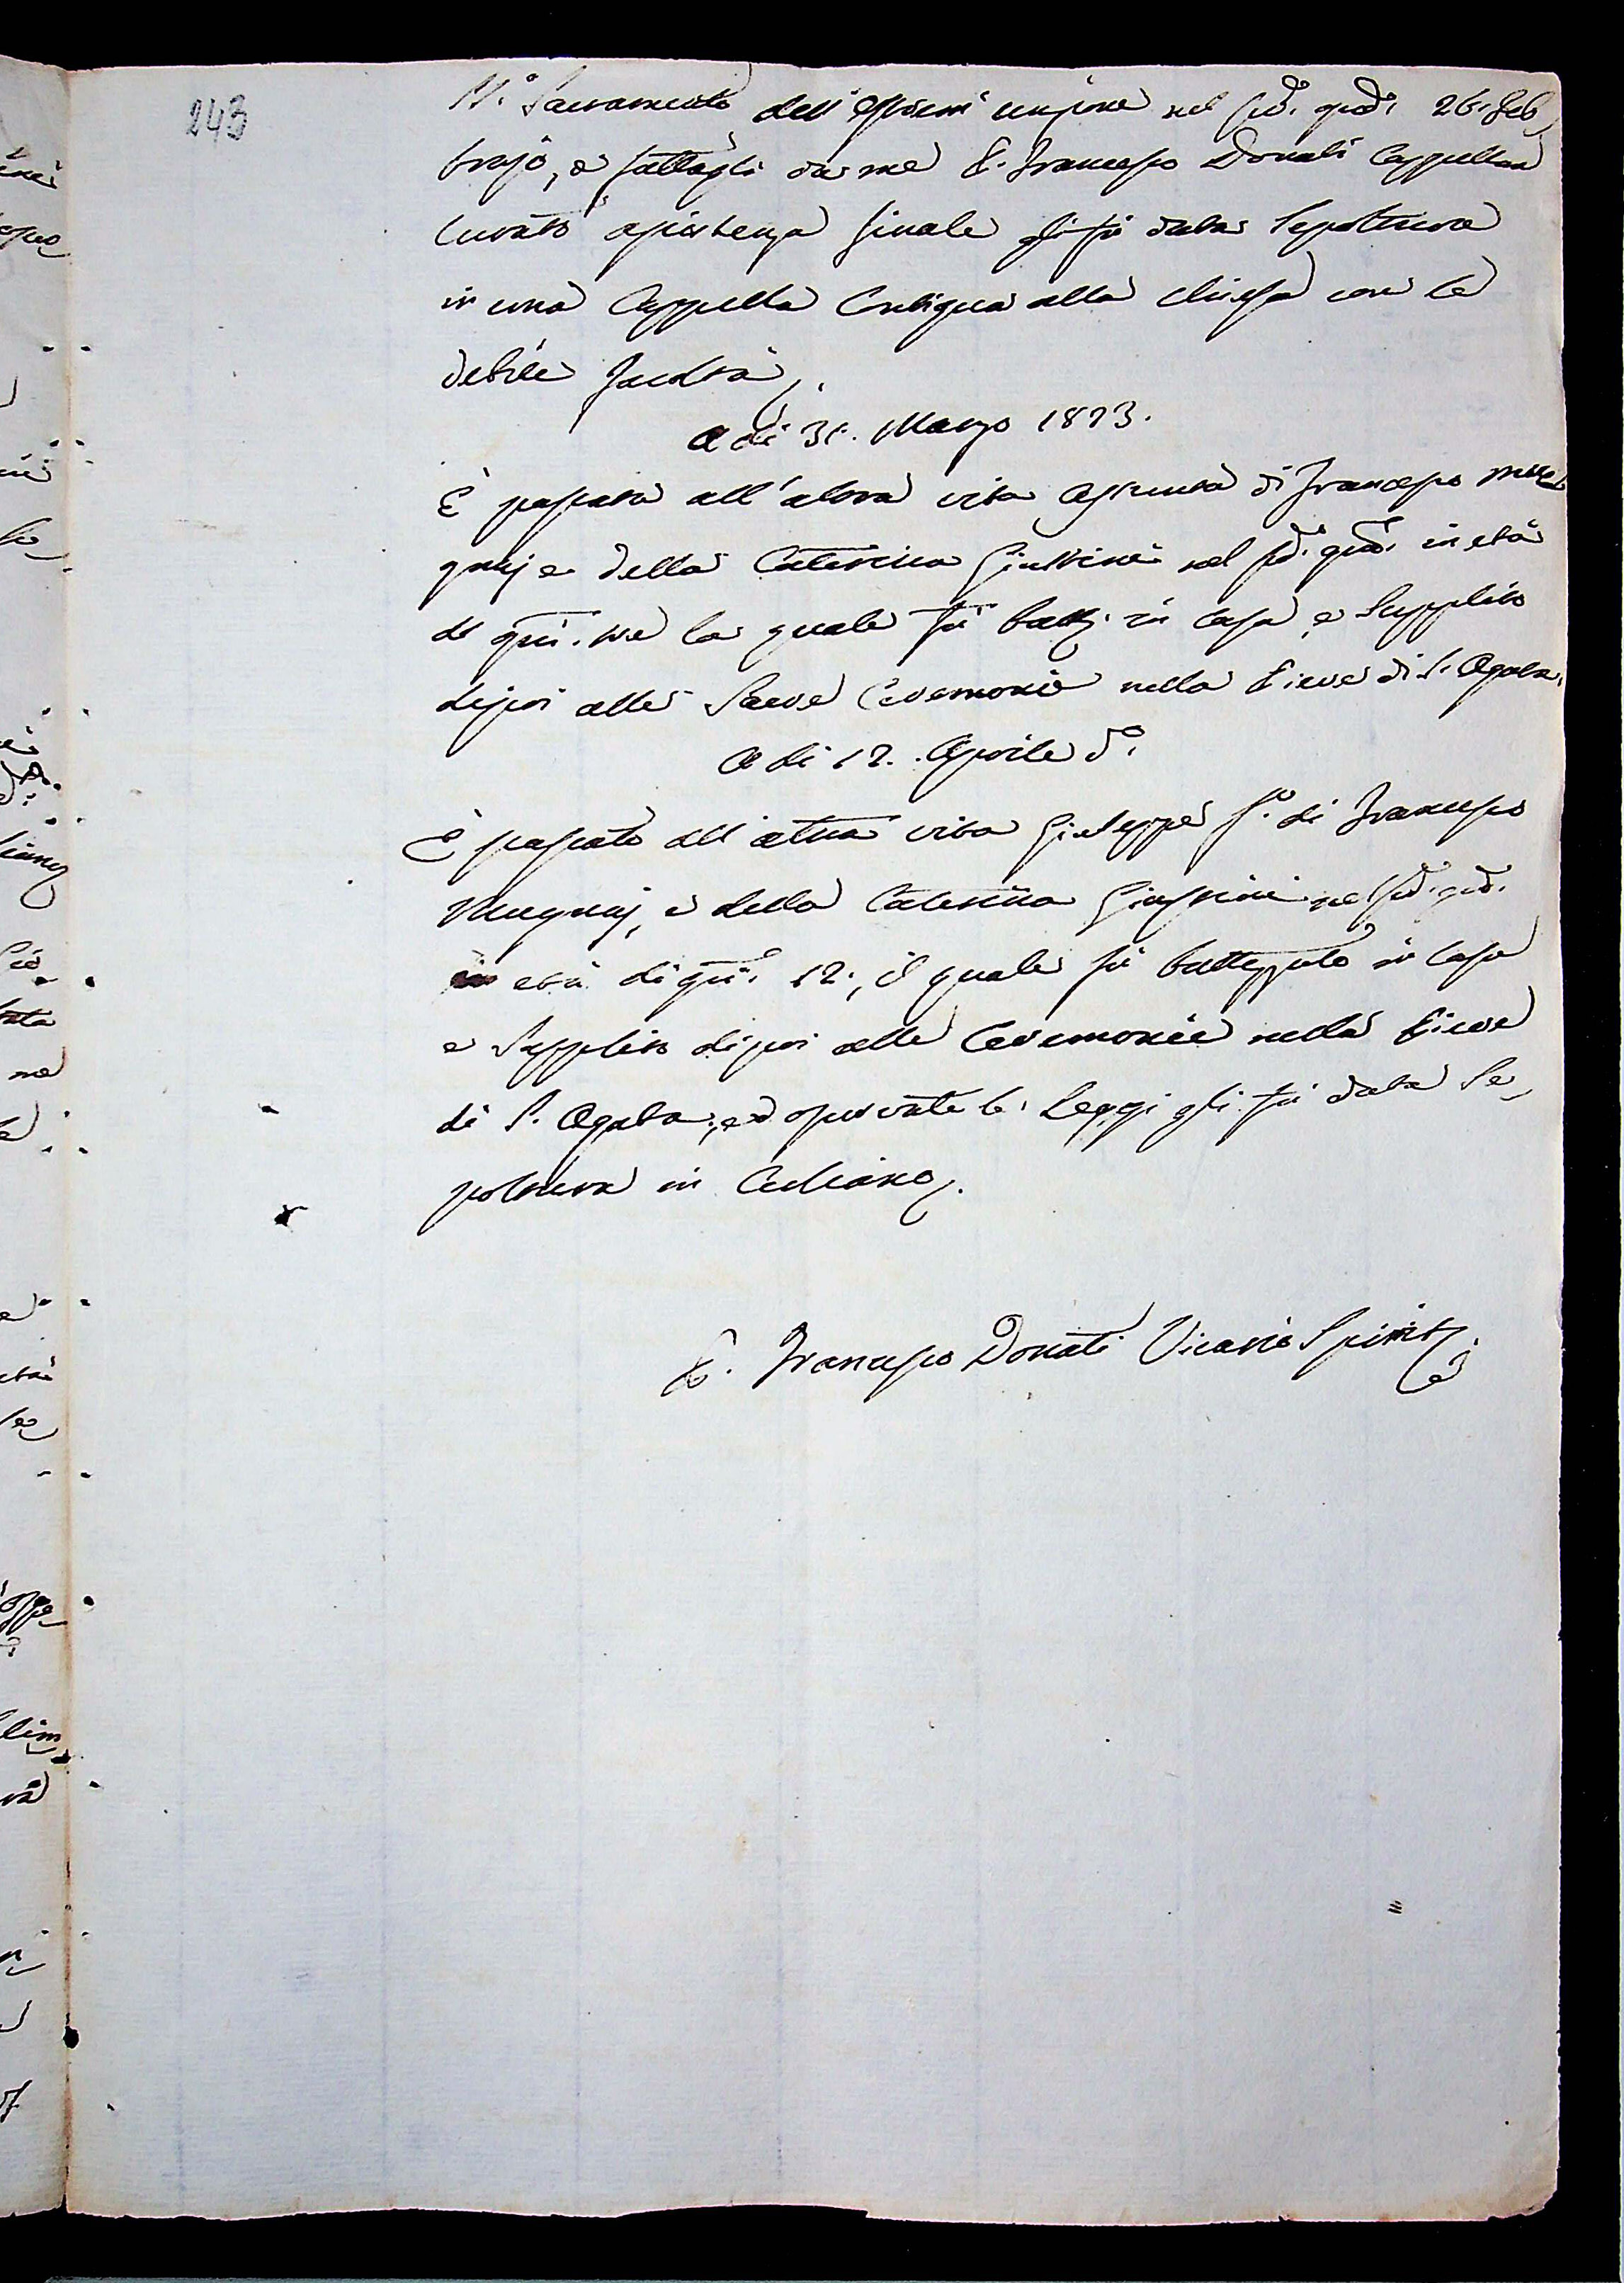 243
Sacramento dell'estrem'unzione nel sud. giod. 26. Feb
brajo, e fattagli da me P. Francesco Donati Cappellan
Curato assistenza finale gli fù data Sepoltura
in una Cappella Contigua alla Chiesa con le
debite facoltà.
A di 31. Marzo 1823.
È passata all'altra vita Assunta di Francesco Mu
gnaj e della Caterina Giustini nel sud. giod. in età
di gni. tre la quale fù batt. in casa, e Supplito
dipoi alle Sacre Ceremonie nella Pieve di S. Agata.
A di 12. Aprile do.
È passato all'altra vita Giuseppe fo. di Francesco
Mugnaj, e della Caterina Giustini nel sud. giod.
in età di gni. 12., il quale fù battezzato in casa
e Supplito dipoi alle Ceremonie nella Pieve
di S. Agata, ed osservate le Leggi gli fù data Se
poltura in Celiano.
P. Francesco Donati Vicario Spirit.